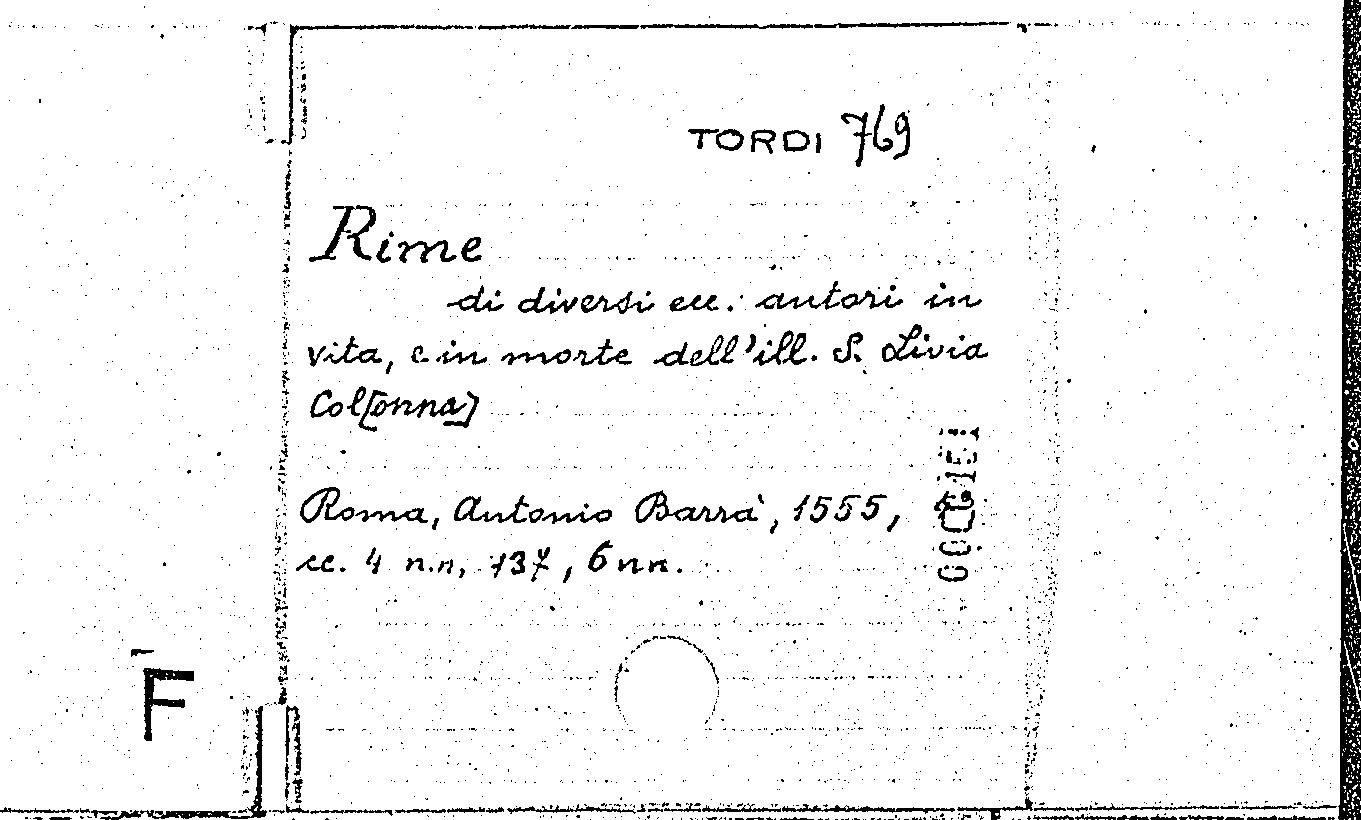 TORDI 769
Rime
di diversi ecc. autori in
vita, e in morte dell'ill. S. Livia
Col[onna]
Roma, Antonio Barrà, 1555,
cc. 4 n.n, 137, 6 nn.
F